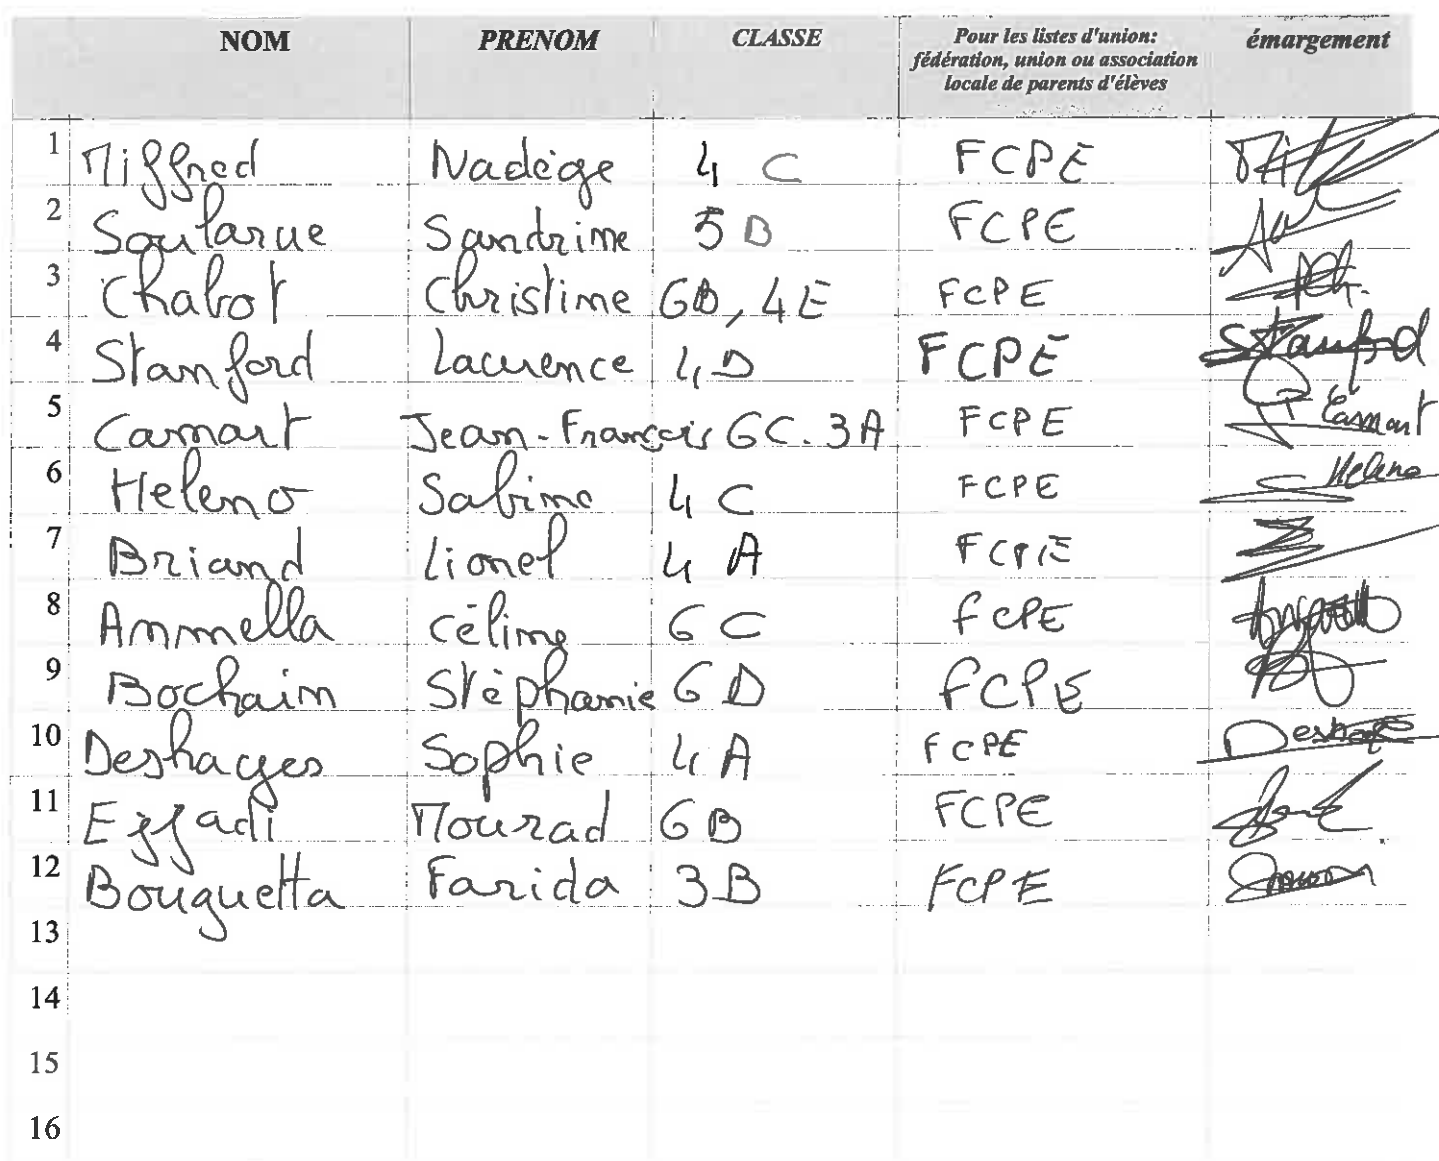 NOM PRENOM CLASSE Pour les listes d'union: fédération, union ou association locale de parents d'élèves émargement
1 Miffred Nadège 4 C FCPE
2 Soularue Sandrine 5 B FCPE
3 Chabot Christine 6B, 4E FCPE
4 Stanford Laurence 4 D FCPE Stanford
5 Camart Jean-François 6C. 3A FCPE Camart
6 Heleno Sabine 4 C FCPE Heleno
7 Briand Lionel 4 A FCPE
8 Annnella Céline 6 C FCPE
9 Bochain Stéphanie 6 D FCPE
10 Deshayes Sophie 4 A FCPE Deshayes
11 Ezzadi Mourad 6 B FCPE
12 Bouguetta Farida 3 B FCPE
13
14
15
16